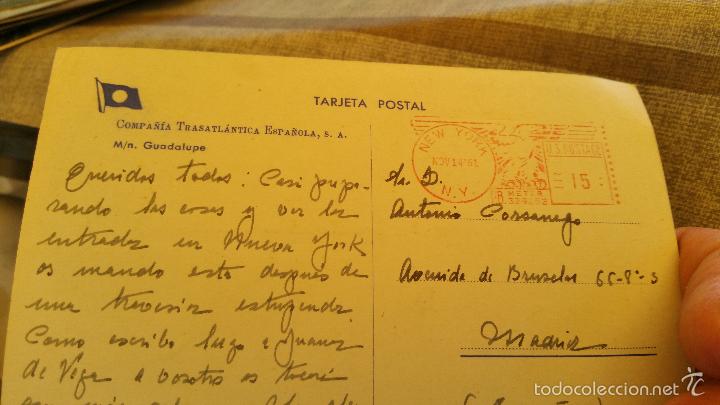 TARJETA POSTAL
COMPAÑÍA TRASATLÁNTICA ESPAÑOLA, S. A.
M/n. Guadalupe
Queridos todos: Casi prepa-
rando las cosas y ver la
entrada en Nueva York
os mando esto despues de
una travesia estupenda.
Como escribo luego a
de Vega a vosotros os
NEW YORK
NOV 14 '61
N.Y.
U.S. POSTAGE
15
METER
Sr. D.
Antonio Corsanego
Avenida de Bruselas 66-8º-
Madrid
todocoleccion.net